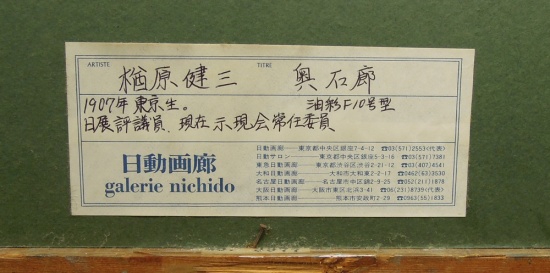 ARTISTE 楢原健三 TITRE 奥石廊
1907年東京生。 油彩F10号型
日展評議員、現在 示現会常任委員
日動画廊
galerie nichido
日動画廊──東京都中央区銀座7-4-12 ☎03(571)2553(代表)
日動サロン──東京都中央区銀座5-3-16 ☎03(571)7381
東急日動画廊──東京都渋谷区渋谷2-21-12 ☎03(407)4541
大和日動画廊──大和市大和東2-2-17 ☎0462(63)3530
名古屋日動画廊──名古屋市中区錦2-9-25 ☎052(211)1878
大阪日動画廊──大阪市東区北浜3-41 ☎06(231)8739(代表)
熊本日動画廊──熊本市安政町2-29 ☎0963(55)1833